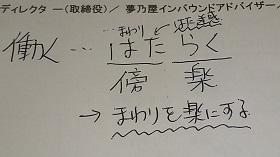 ディレクター(取締役)／ 夢乃屋インバウンドアドバイザー
まわり
働く … はた らく
傍 楽
→ まわりを楽にする